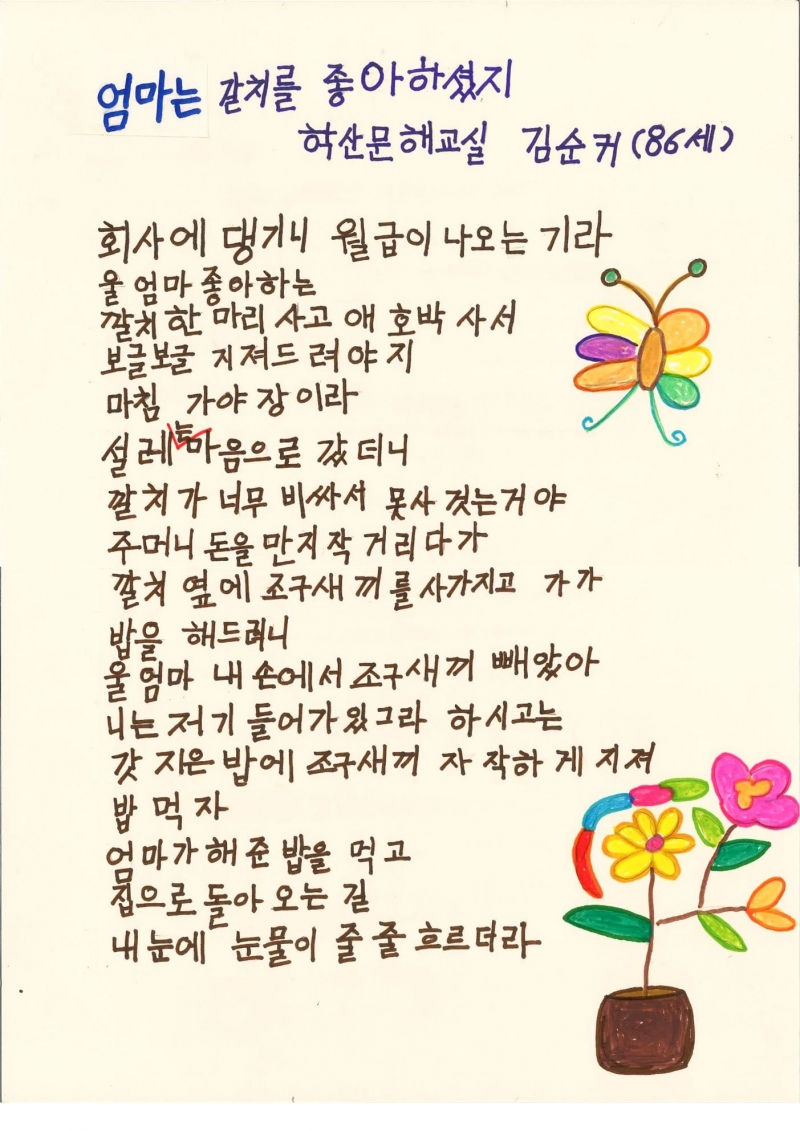 엄마는 갈치를 좋아하셨지
학산문해교실 김순커(86세)
회사에 댕기니 월급이 나오는 기라
울 엄마 좋아하는
깔치 한 마리 사고 애 호박 사서
보글보글 지져드려야지
마침 가야 장이라
설레는 마음으로 갔더니
깔치가 너무 비싸서 못사 겄는거야
주머니 돈을 만지작 거리다가
깔치 옆에 조구새끼를 사가지고 가가
밥을 해드리니
울 엄마 내 손에서 조구새끼 빼았아
니는 저기 들어가 있그라 하시고는
갓 지은 밥에 조구새끼 자작하게 지져
밥 먹자
엄마가 해 준 밥을 먹고
집으로 돌아 오는 길
내 눈에 눈물이 줄 줄 흐르더라